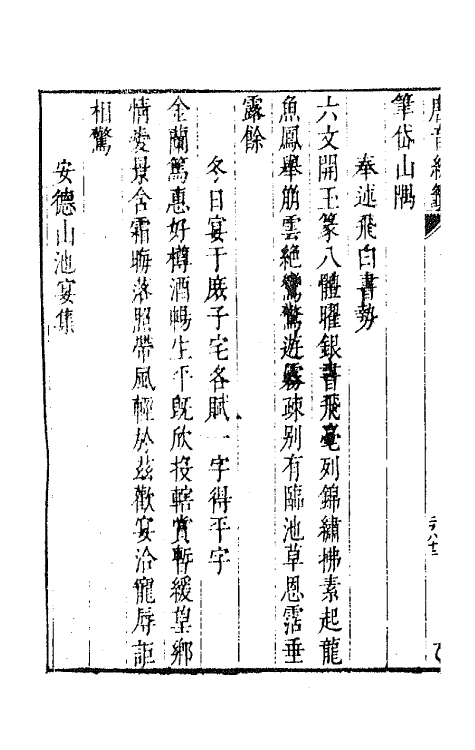 唐音統籤
筆岱山隅
奉述飛白書勢
六文開玉篆八體曜銀書飛毫列錦繡拂素起龍
魚鳳舉崩雲絶鸞驚遊霧疎别有臨池草恩霑垂
露餘
冬日宴于庶子宅各賦一字得平字
金蘭篤惠好樽酒暢生平既欣投轄賞暫緩望鄉
情愛景含霜晦落照帶風輕於兹歡宴洽寵辱詎
相驚
安德山池宴集